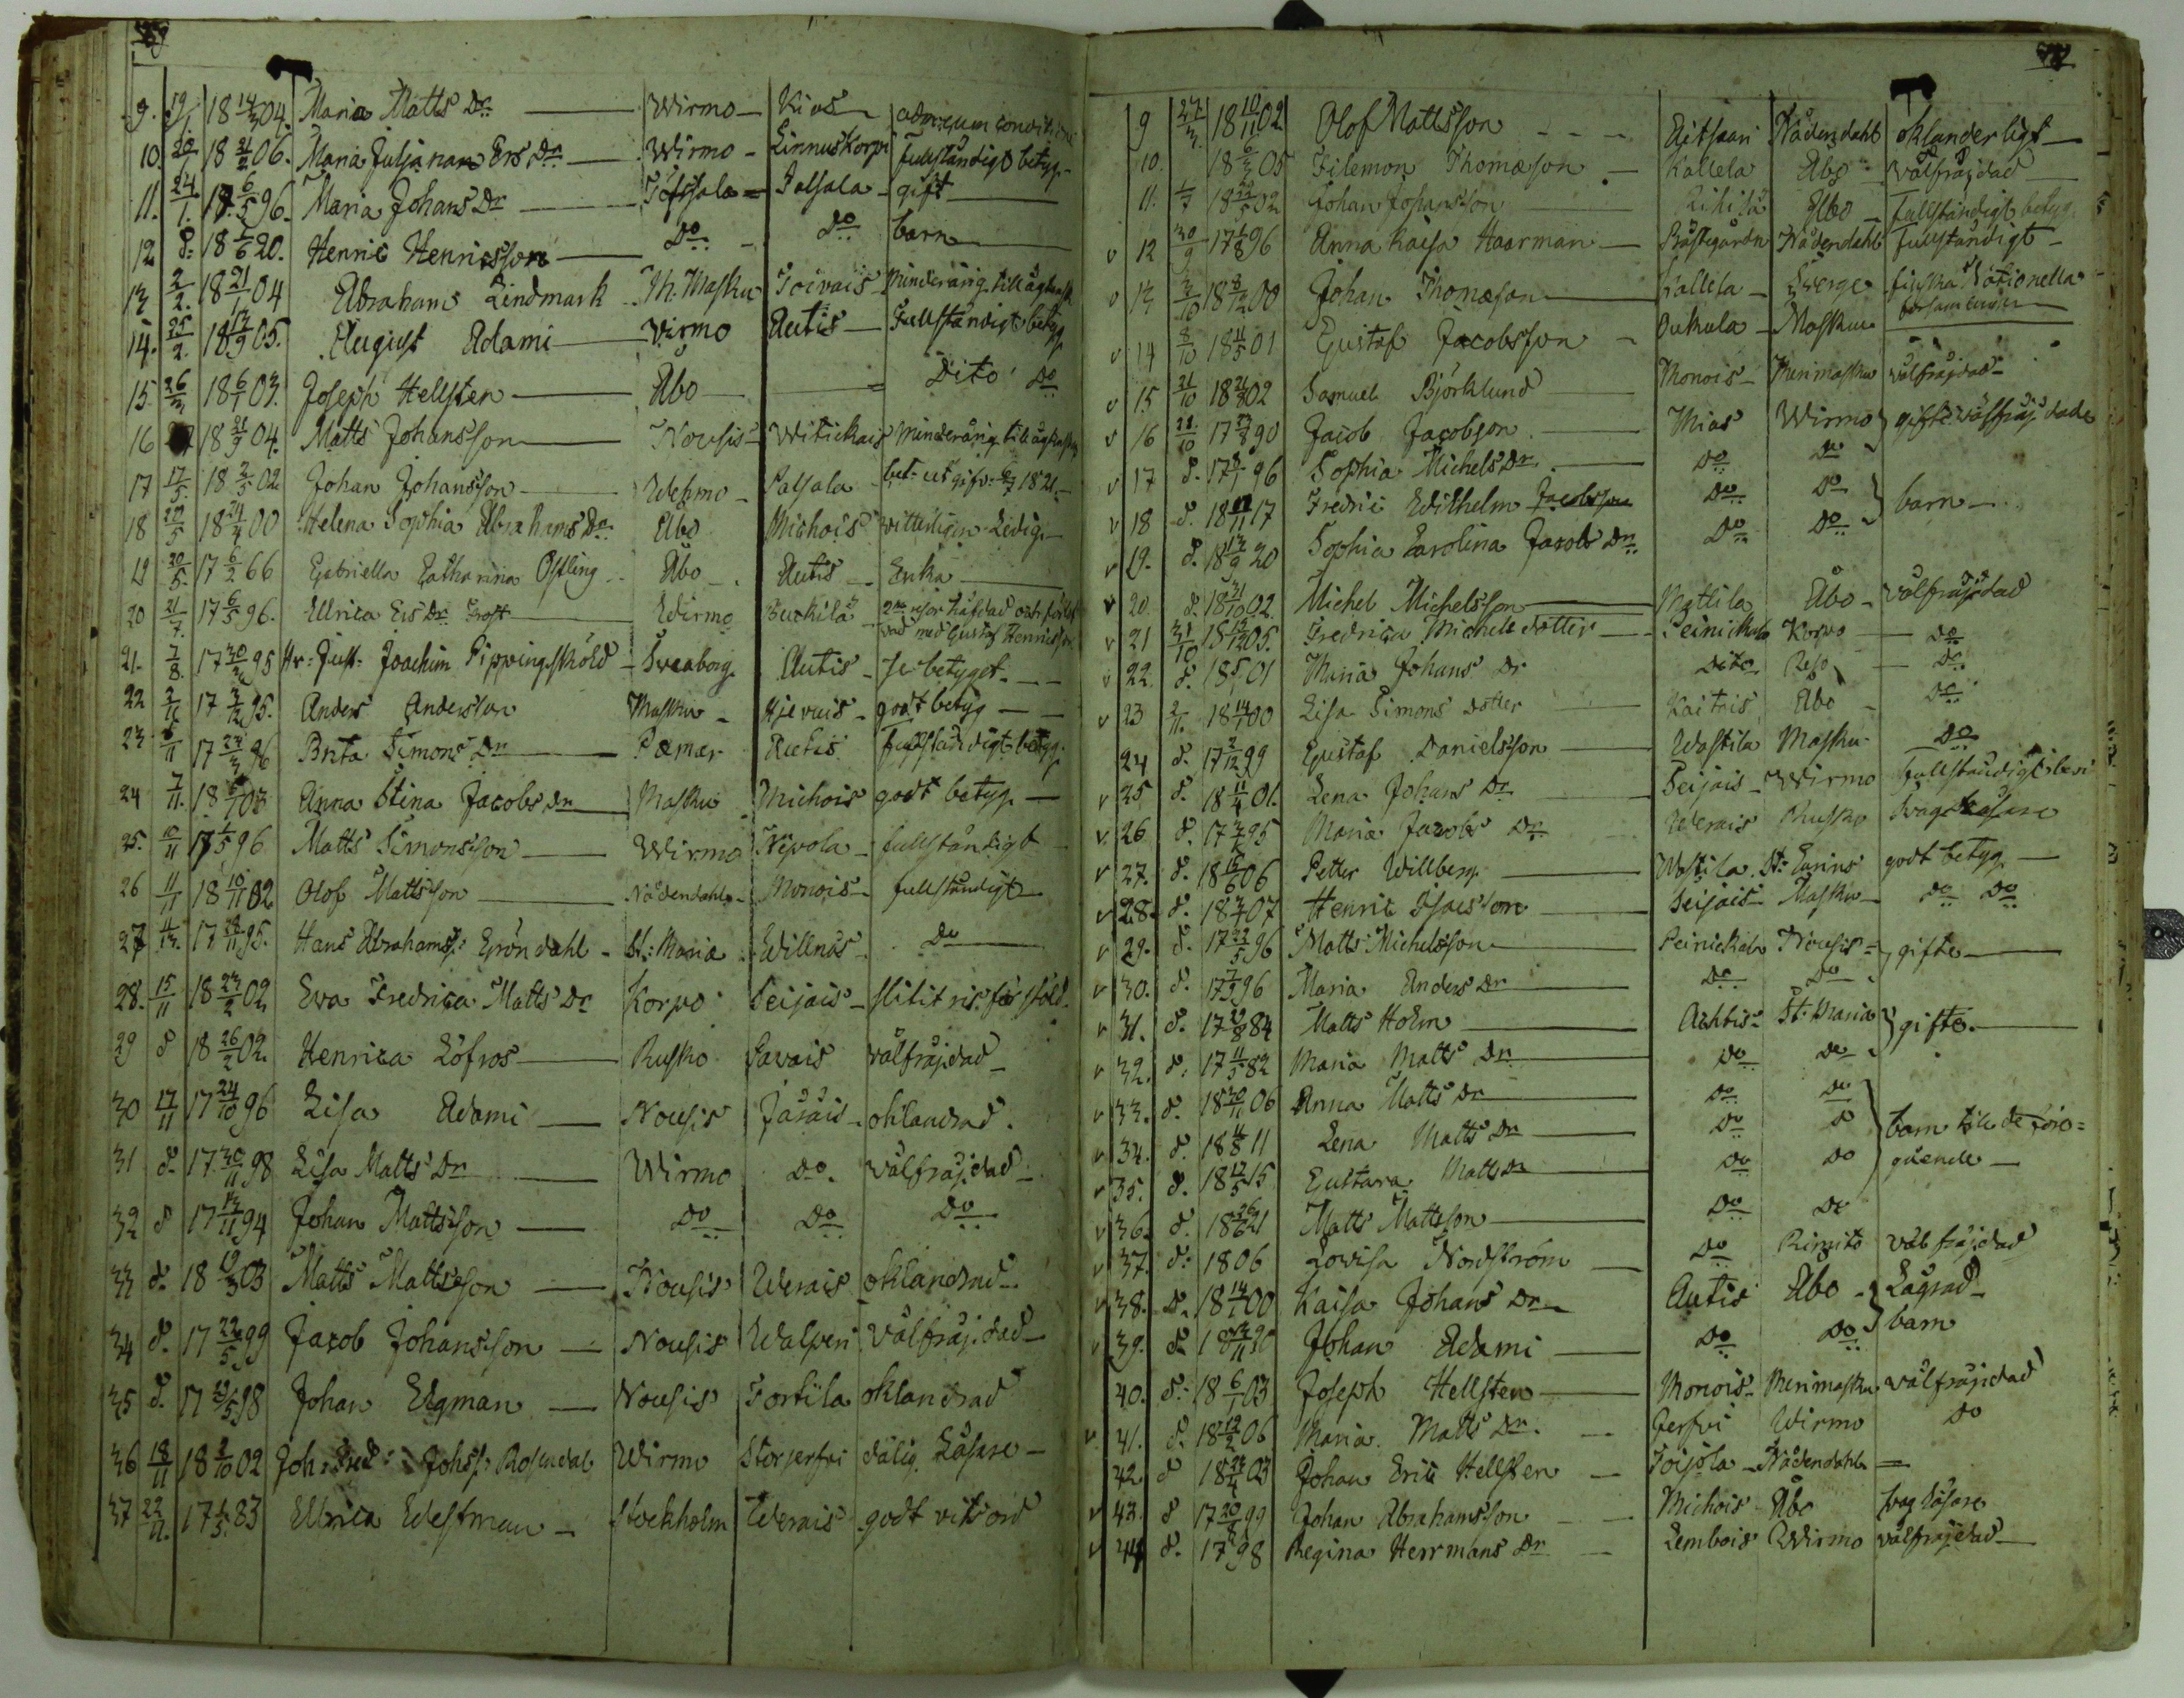 9. 19/1 18 14/3 04. Maria Matts Dr Wirmo Kios
10. 20/1 18 21/2 06. Maria Juljanan Ers Dr Wirmo Linnuskorpi fullständigt betyg
11. 24/1. 17 6/5 96. Maria Johans Dr Töfsala Salsala gift
12 d: 18 1/6 20. Henric Henricsson Do Do barn
13 2/2. 18 21/1 04 Abraham Lindmark M. Masku Toivais Minderårig
14. 25/2. 18 13/9 05. August Adami Virmo Autis Fullständigt betyg
15 26/3 18 6/1 03. Joseph Hellsten Åbo Dito Do
16 18 21/9 04. Matts Johansson Nousis Witickais Minderårig
17 17/5. 18 2/5 02 Johan Johansson Wehmo Salsala bet: utgifv: 1821.
18 18 24/4 00 Helena Sophia Abrahams Dr Åbo Michois Ledig
19 30/5. 17 6/2 66 Gabriella Catharina Östling Åbo Autis Enka
20 21/7. 17 6/5 96. Ullrica Ers Dr Frost Wirmo Buckila med Gustaf Henricsson
21. 7/8. 17 30/3 95 Hr: Just: Joachim Pippingsköld Sveaborg Autis Se betyget
22 2/11 17 2/12 95. Anders Andersson Masku Hjervais godt betyg
23 5/11 17 24/3 96 Brita Simons Dr Pæmar Autis fullständigt betyg
24 7/11. 18 03 Anna Stina Jacobs Dr Masku Michois godt betyg
25. 10/11 17 1/5 96 Matts Simonsson Wirmo Nipola fullständigt
26 11/11 18 10/11 02 Olof Mattsson Nådendahl Monois fullständigt
27 17 28/11 95. Hans Abrahamss: Gröndahl St: Maria Willnäs Do
28. 15/11 18 23/2 02 Eva Fredrica Matts Dr Korpo Seijais slitit ris för stöld
29 d 18 26/2 02. Henrica Löfros Rusko Savais välfräjdad
30 17/11 17 24/10 96 Lisa Adami Nousis Järäis oklandrad.
31 d 17 30/11 98 Lisa Matts Dr Wirmo Do. välfräjdad
32 d 17 13/11 94 Johan Mattsson Do Do Do
33 d. 18 19/3 03 Matts Mattsson Nousis Werais oklandrad
34 d. 17 22/5 99 Jacob Johansson Nousis Walpperi Välfräjdad
35 d. 17 98 Johan Ekman Nousis Tortila oklandrad
36 18/11 18 2/10 02 Joh: Fred: Johss: Rosendal Wirmo Storjerfvi dålig Läsare
37 22/11. 17 1/5. 83 Ullrica Westman Stockholm Werais godt vitsord
9 27/3. 18 10/11 02 Olof Mattsson Aitsaari Nådendahl oklanderligt
10. 18 6/3 05 Filemon Thomæson Kallela Åbo Välfräjdad
11. 1/7 18 22/5 02 Johan Johansson Åbo Fullständigt betyg
v 12 30/9 17 1/8 96 Anna Kaisa Haarman Nådendahl fullständigt
v 13 3/10 18 00 Johan Thomæson Kallela Sverge finska Nationella
v 14 8/10 18 11/5 01 Gustaf Jacobsson Oukula Masku
v 15 21/10 18 02 Samuel Björklund Monois Merimasku välfräjdad
v 16 28/10 17 90 Jacob Jacobson Mias Wirmo gifte välfräjdade
v 17 d. 17 96 Sophia Michels Dr. Do Do
v 18 d. 18 17 Fredric Wilhelm Jacobsson Do Do barn
v 19. d. 18 13/9 20 Sophia Carolina Jacobs Dr. Do Do
v 20. d. 18 31/10 02 Michel Michelsson Mattila Åbo välfräjdad
v 21 31/10 18 12/12 05. Fredrica Michels dotter Peinickala Korpo Do
v 22. d. 18 01 Maria Johans Dr Dito Reso Do
v 23 2/11. 18 14/1 00 Lisa Simons dotter Kaitais Åbo Do
24 d. 17 2/12 99 Gustaf Danielsson Wastila Masku Do
v 25 d. 18 11/4 01. Lena Johans Dr Seijais Wirmo fullständigt
v 26 d. 17 95 Maria Jacobs Dr Werais Rusko Svag läsare
v 27. d. 18 15/6 06 Petter Willberg Wastila St: Carins godt betyg
v 28. d. 18 07 Henric Isacsson Seijais Masku Do Do
v 29. d. 17 22/5 96 Matts Michelsson Peinickala Nousis gifte
v 30. d. 17 96 Maria Anders Dr Do Do
v 31. d. 17 29/8 84 Matts Holm Achtis St: Maria gifte.
v 32. d: 17 11/5 82 Maria Matts Dr Do Do
v 33. d. 18 30/11 06 Anna Matts Dr Do Do
v 34. d. 18 11/8 11 Lena Matts Dr Do D barn till de före=
v 35. d. 18 12/5 15 Gustava Matts Dr Do Do gående
v 36. d. 18 26/6 21 Matts Mattsson Do Do
v 37. d: 18 06 Lovisa Nordström Do Rimito väl fräjdad
v 38. D. 18 14/1 00 Kaisa Johans Dr Autis Åbo Lägrad
v 39. d. 18 Johan Adami Do Do barn
40. d. 18 6/1 03 Joseph Hellsten Monois Merimasku välfräjdad
v 41. d. 18 12/2 06 Maria Matts Dr. Jerfvi Wirmo Do
42. d 18 03 Johan Eric Hellsten Toijola Nådendahl
v 43. d 17 20/8 99 Johan Abrahamsson Michois Åbo svag läsare
v 44 d. 17 98 Regina Herrmans Dr Lembois Wirmo välfräjdad